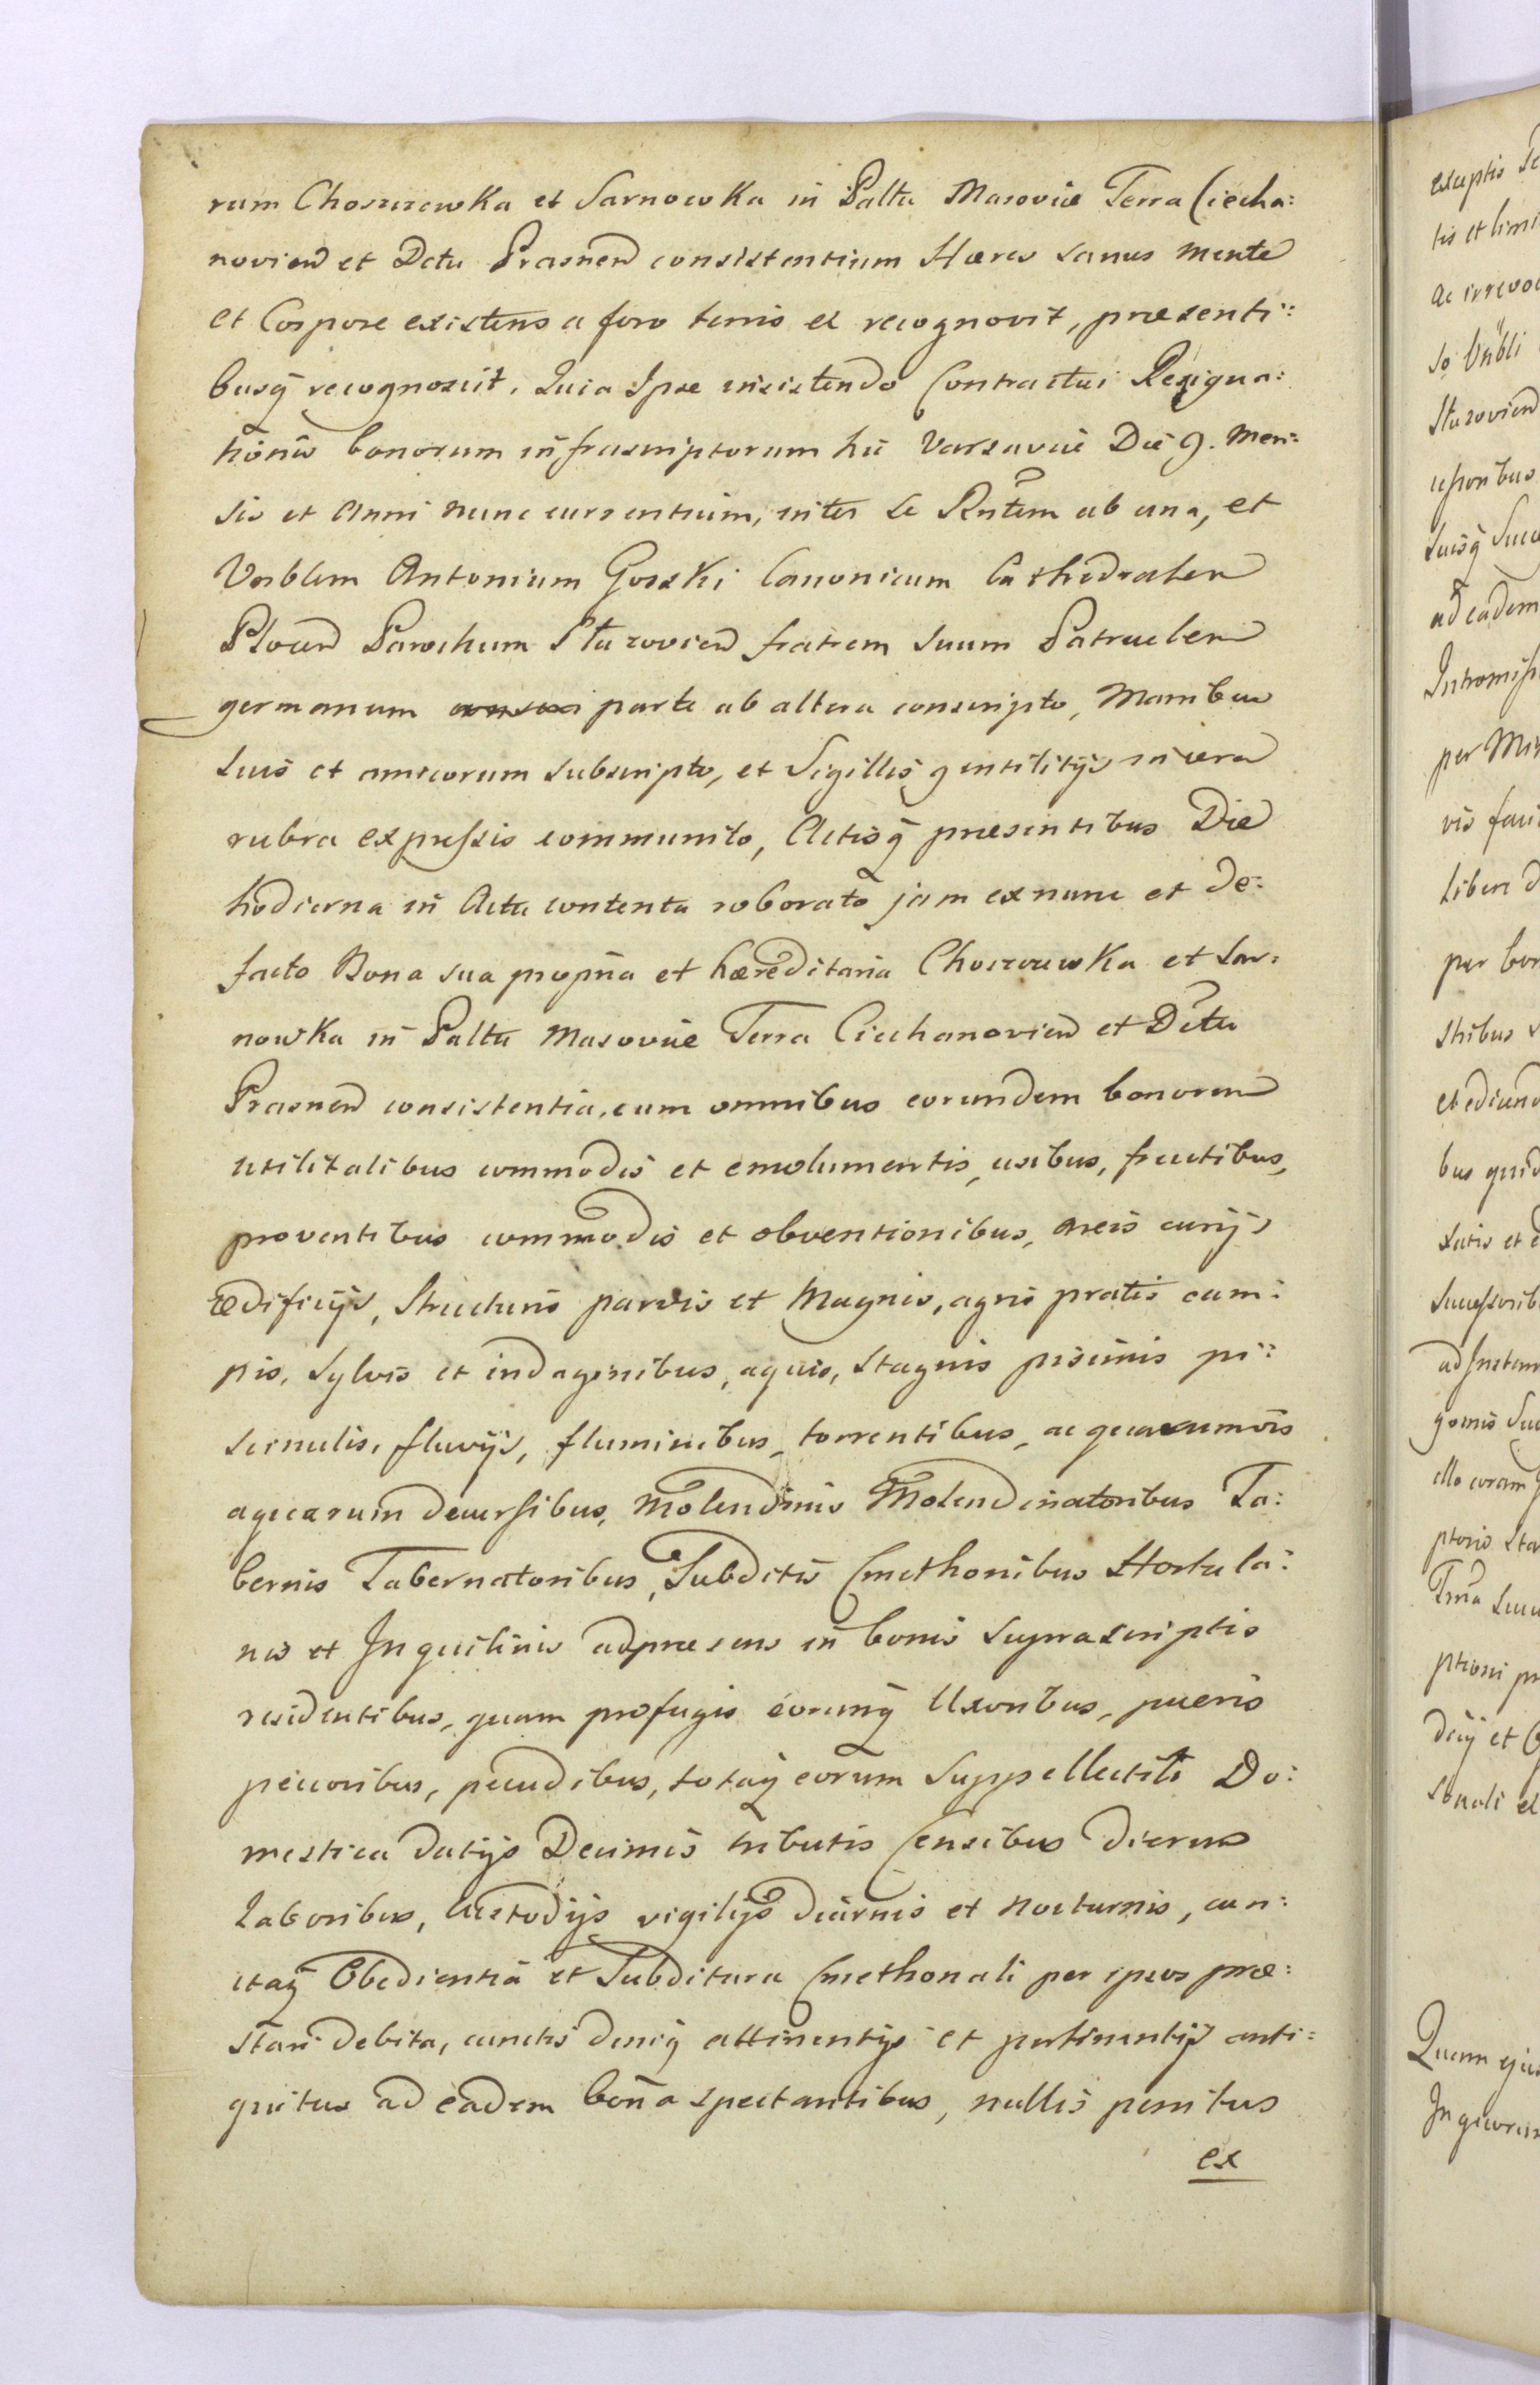 rum Choszczewka et Sarnowka in Palttu Masoviæ Terra Ciecha:
novien et Dctu Prasnen consistentium Hæres sanus mente
et Corpore existens a foro terris et recognovit, præsenti:
busq recognoscit. Quia Ipse insistendo Contractui Resigna:
tionis bonorum infrascriptorum hic Varsaviæ Die 9. Men:
sis et Anni nunc currentium, inter se Rntem ab una, et
Vnblem Antonium Gorski Canonicum Cathedralem
Plocen Parochum Starovien fratrem suum Patruelem
germanum parte ab altera conscripto, Manibus
suis et amicorum subscripto, et Sigillis gentilitijs in cera
rubra expressis communito, Actisq præsentibus Die
hodierna in Acta contenta roborato jam ex nunc et de:
facto Bona sua propria et hæreditaria Choszczewka et Sar:
nowka in Palttu Masoviæ Terra Ciechanovien et Dctu
Prasnen consistentia, cum omnibus eorundem bonorum
utilitatibus commodis et emolumentis, usibus, fructibus,
proventibus commodis et obventionibus, areis curijs
ædificijs, Structuris parvis et Magnis, agris pratis cam:
pis, sylvis et indaginibus, aquis, stagnis piscinis pi:
scinulis, fluvijs, fluminibus, torrentibus, ac quarumvis
aquarum decursibus, Molendinis Molendinatoribus Ta:
bernis Tabernatoribus, Subditis Cmethonibus Hortula:
nis et Inquilinis ad præsens in bonis suprascriptis
residentibus, quam profugis eorumq Uxoribus, pueris
pecoribus, pecudibus, totaq eorum Suppellectili Do:
mestica datijs Decimis tributis Censibus
Laboribus, Custodijs vigilijs diurnis et nocturnis, cun:
ctaq Obedientia et Subditura Cmethonali per ipsos præ:
stari debita, cunctis deniq attinentijs et pertinentijs anti:
quitus ad eadem bona spectantibus, nullis penitus
ex